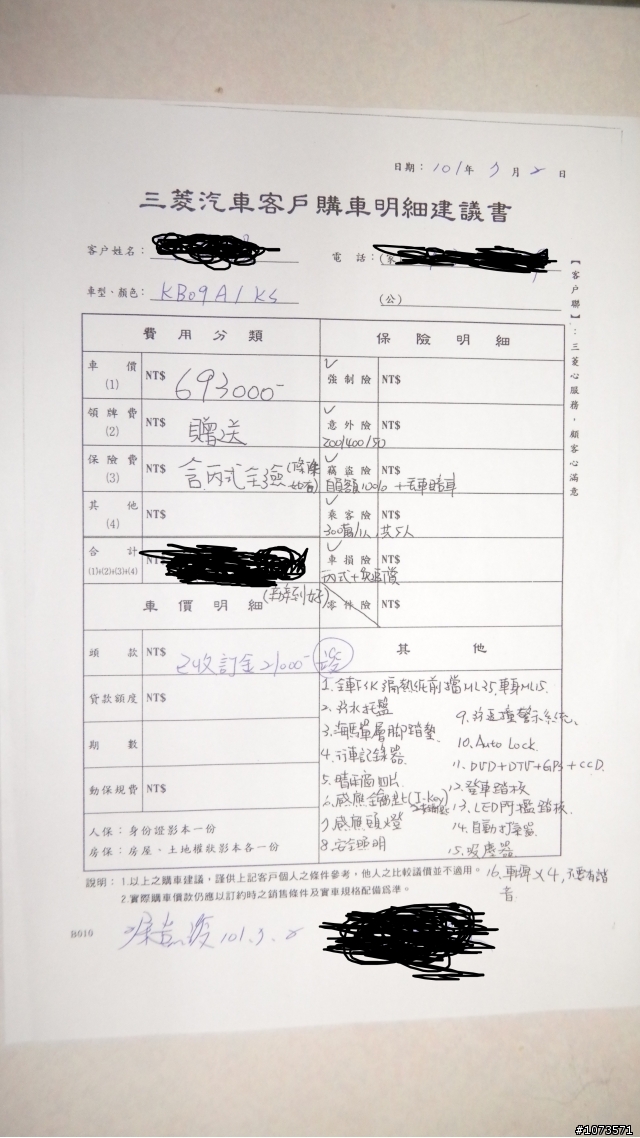 日期：101年 7月 2日
三菱汽車客戶購車明細建議書
客戶姓名：
電 話：
車型、顏色：KB09A1KS
(公)
【客戶聯】：三菱心服務，顧客心滿意
費用分類
保險明細
車價(1) NT$ 693000-
✓強制險 NT$
領牌費(2) NT$ 贈送
✓意外險 NT$
200/400/50
保險費(3) NT$ 含丙式全險
✓竊盜險 NT$
自負額10% +全車賠車
其他(4) NT$
✓乘客險 NT$
300萬/1人,共5人
合計(1)+(2)+(3)+(4) NT$
✓車損險 NT$
丙式+免折價
車價明細 (辦到好)
零件險 NT$
頭款 NT$ 已收訂金21000-
其他
貸款額度 NT$
期數
動保規費 NT$
1.全車FSK隔熱紙前擋ML35,車身ML15.
2.防水托盤
3.海馬單層腳踏墊
4.行車記錄器
5.晴雨窗四片
6.感應鑰匙(I-key)
7.感應頭燈
8.安全照明
9.防追撞警示系統.
10.Auto Lock.
11.DVD+DTV+GPS+CCD.
12.登車踏板
13.LED門檻踏板.
14.自動打擋器.
15.吸塵器
16.車牌×4,不要有諧音
人保：身份證影本一份
房保：房屋、土地權狀影本各一份
說明：1.以上之購車建議，謹供上記客戶個人之條件參考，他人之比較議價並不適用。
2.實際購車價款仍應以訂約時之銷售條件及實車規格配備為準。
B010
101.7.2
#1073571